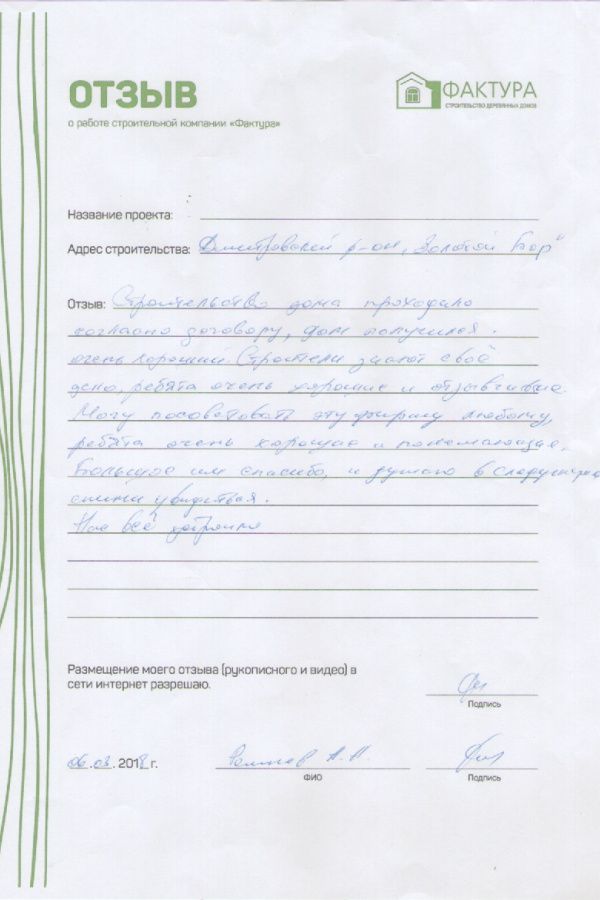 ОТЗЫВ
о работе строительной компании «Фактура»
ФАКТУРА
СТРОИТЕЛЬСТВО ДЕРЕВЯННЫХ ДОМОВ
Название проекта:
Адрес строительства: Дмитровский р-он, "Золотой Бор"
Отзыв: Строительство дома проходило
согласно договору, дом получился
очень хороший. Строители знают своё
дело, ребята очень хорошие и отзывчивые.
Могу посоветовать эту фирму любому,
ребята очень хорошие и понимающие,
Большое им спасибо, и думаю в
с ними увидеться.
Нас всё
Размещение моего отзыва (рукописного и видео) в
сети интернет разрешаю.
Подпись
06.03.2018г.
А.
ФИО
Подпись